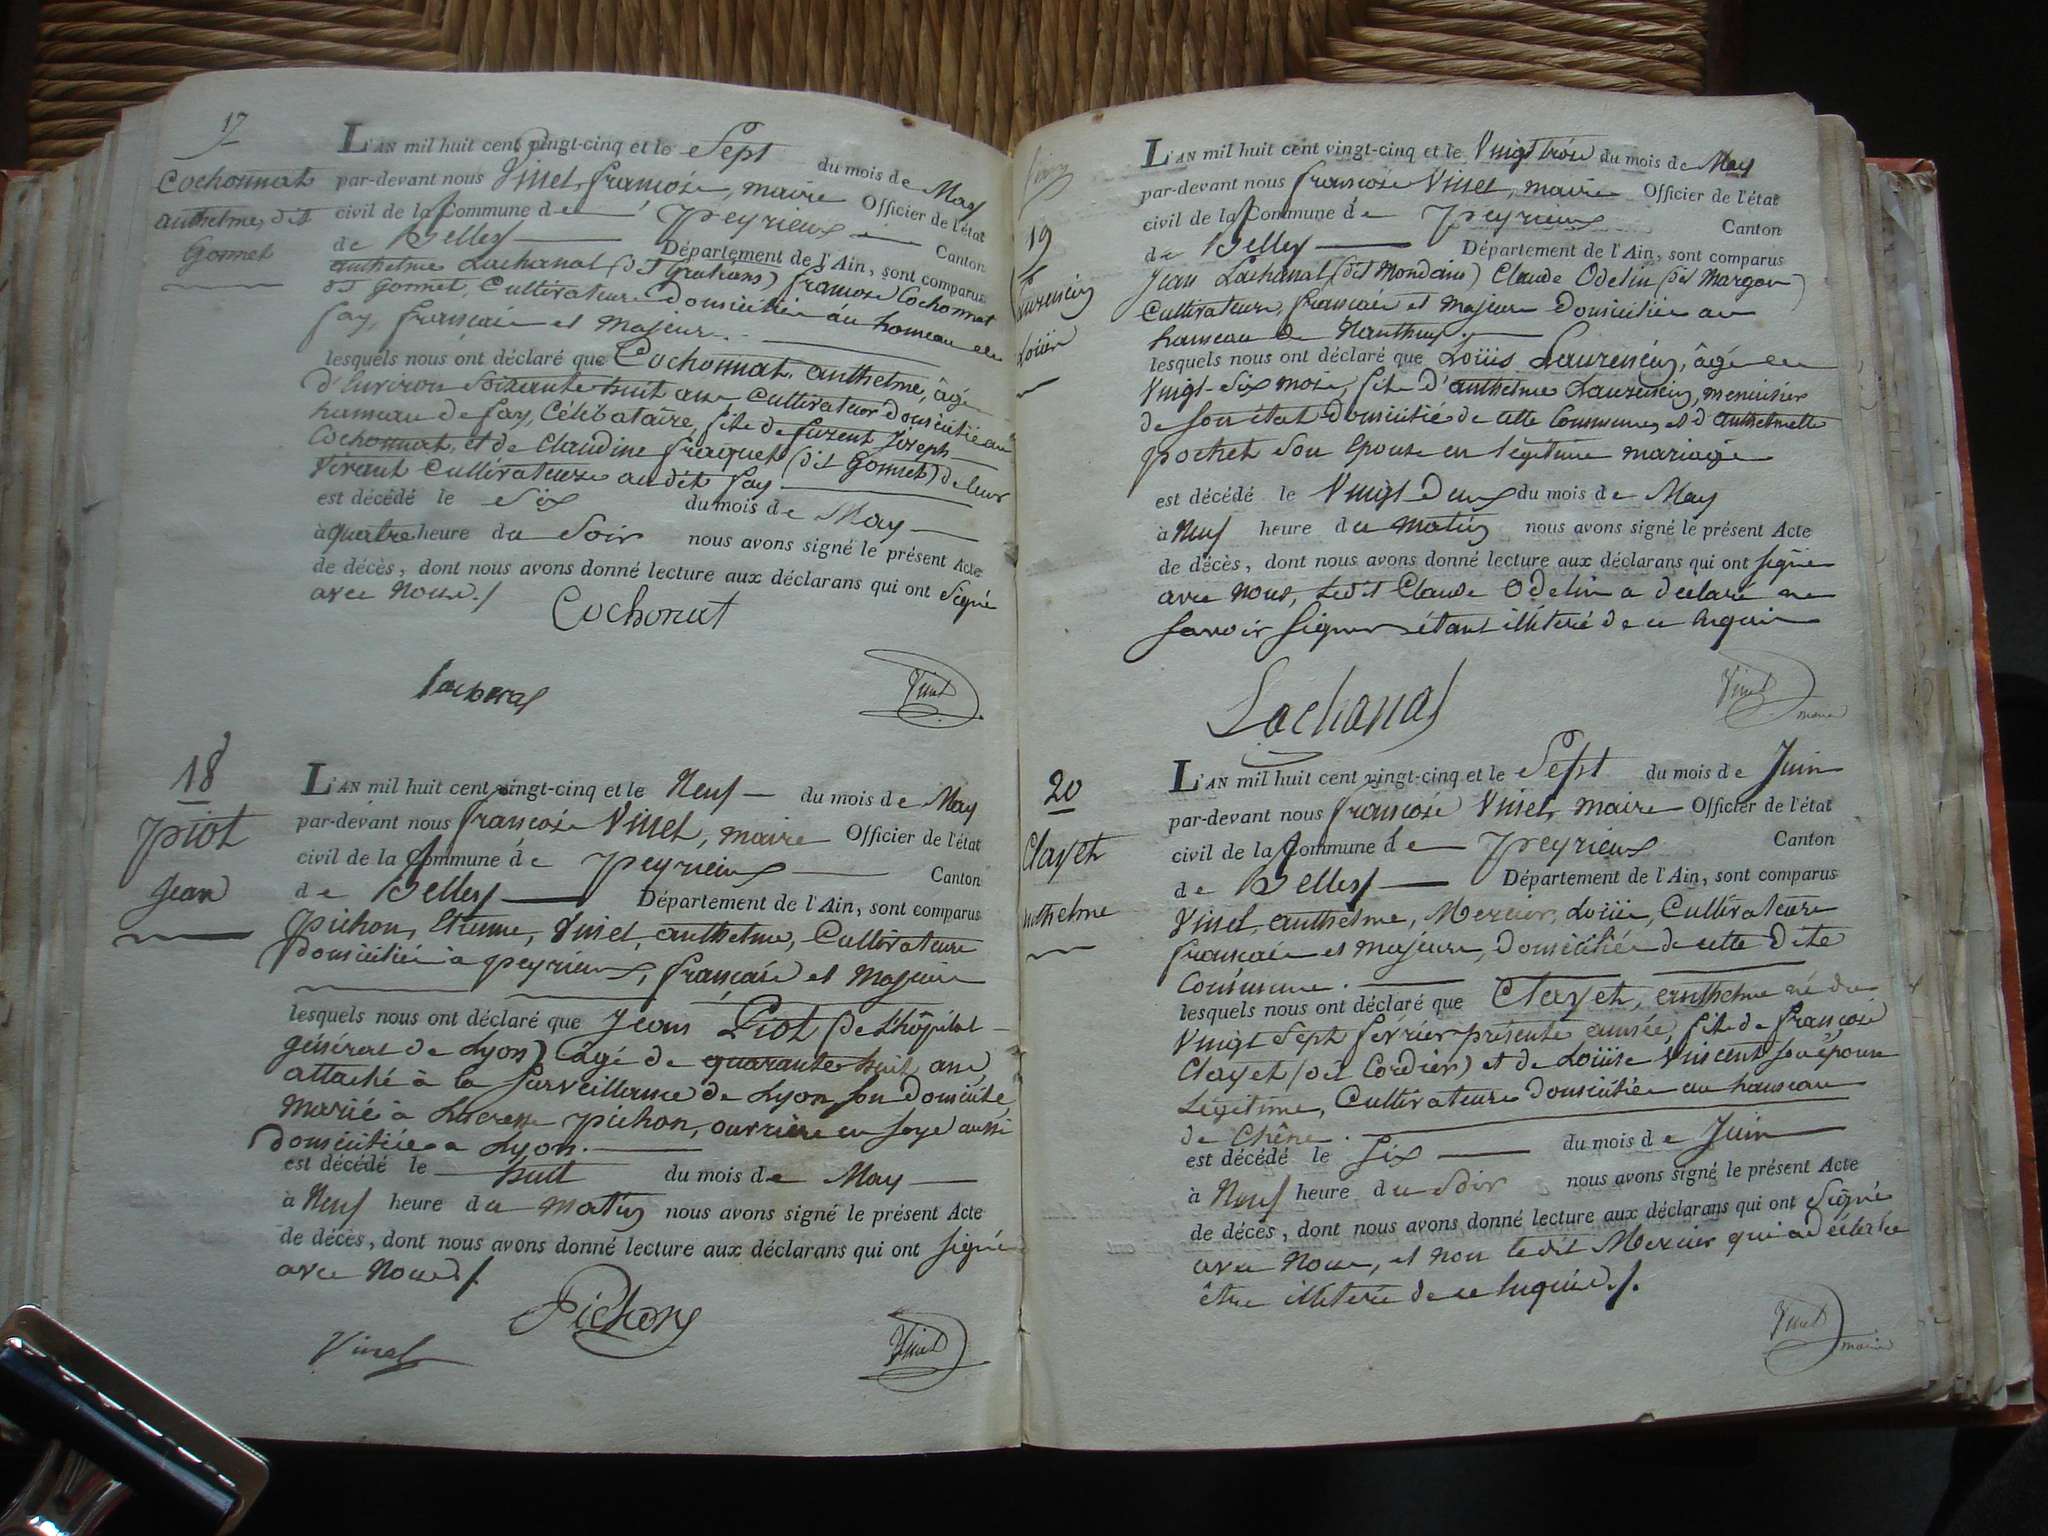 17
Cochonnat
anthelme, dit
Gonnet
L'AN mil huit cent vingt-cinq et le Sept du mois de May
par-devant nous Vinet, françois, maire Officier de l'état
civil de la Commune de Peyrieux Canton
de Belley Département de l'Ain, sont comparus
anthelme Lachanal (dit ) françois Cochonnat
dit Gonnet, Cultivateurs domiciliés au hameau de
fay, français et majeurs.
lesquels nous ont déclaré que Cochonnat, anthelme, âgé
d'Environ Soixante huit ans cultivateur domicilié au
hameau de fay, Célibataire, fils de furent Joseph
Cochonnat, et de Claudine fraquet (dit Gonnet) de leur
Vivant Cultivateurs au dit fay
est décédé le Six du mois de May
à quatre heure du Soir nous avons signé le présent Acte
de décès, dont nous avons donné lecture aux déclarans qui ont Signé
avec Nous./
Cochonat
Lachanal
Vinet
18
Piot
Jean
L'AN mil huit cent vingt-cinq et le Neuf du mois de May
par-devant nous françois Vinet, maire Officier de l'état
civil de la Commune de Peyrieux Canton
de Belley Département de l'Ain, sont comparus
Pichon, Etienne, Vinet, anthelme, Cultivateurs
domiciliés à peyrieux, français et Majeurs
lesquels nous ont déclaré que Jean Piot (de L'hôpital
général de Lyon) âgé de quarante huit ans,
attaché à la Surveillance de Lyon, son domicile
Marié à Pichon, ouvrière en soye aussi
domiciliée à Lyon.
est décédé le huit du mois de May
à Neuf heure du matin nous avons signé le présent Acte
de décès, dont nous avons donné lecture aux déclarans qui ont Signé
avec Nous./
Pichon
Vinet
Vinet
19
Laurencin
Loüis
L'AN mil huit cent vingt-cinq et le Vingt trois du mois de May
par-devant nous françois Vinet, maire Officier de l'état
civil de la Commune de Peyrieux Canton
de Belley Département de l'Ain, sont comparus
Jean Lachanal (dit Mondain) Claude Odelin (dit Margon)
Cultivateurs, français et majeurs domiciliés au
hameau de Nanthuy
lesquels nous ont déclaré que Loüis Laurencin, âgé de
Vingt Six mois, fils d'anthelme Laurencin, menuisier
de son état domicilié de cette Commune, et d'anthelmette
pochet son Epouse en légitime mariage
est décédé le Vingt deux du mois de May
à Neuf heure du matin nous avons signé le présent Acte
de décès, dont nous avons donné lecture aux déclarans qui ont signé
avec nous, Ledit Claude Odelin a déclaré ne
savoir signer étant illiteré de ce requis
Lachanal
Vinet
maire
20
Clayet
anthelme
L'AN mil huit cent vingt-cinq et le Sept du mois de Juin
par-devant nous françois Vinet, maire Officier de l'état
civil de la Commune de Peyrieux Canton
de Belley Département de l'Ain, sont comparus
Vinet, anthelme, Mercier, Loüis, Cultivateurs
français et majeurs, domiciliés de cette dite
Commune.
lesquels nous ont déclaré que Clayet, anthelme né du
Vingt Sept février présente année, fils de françois
Clayet (dit Cordier) et de Loüise Vincent son épouse
Légitime, Cultivateurs domiciliés au hameau
de Chêne.
est décédé le Six du mois de Juin
à Neuf heure du Soir nous avons signé le présent Acte
de décès, dont nous avons donné lecture aux déclarans qui ont Signé
avec Nous, et non ledit Mercier qui a déclaré
être illiteré de ce requis./.
Vinet
maire